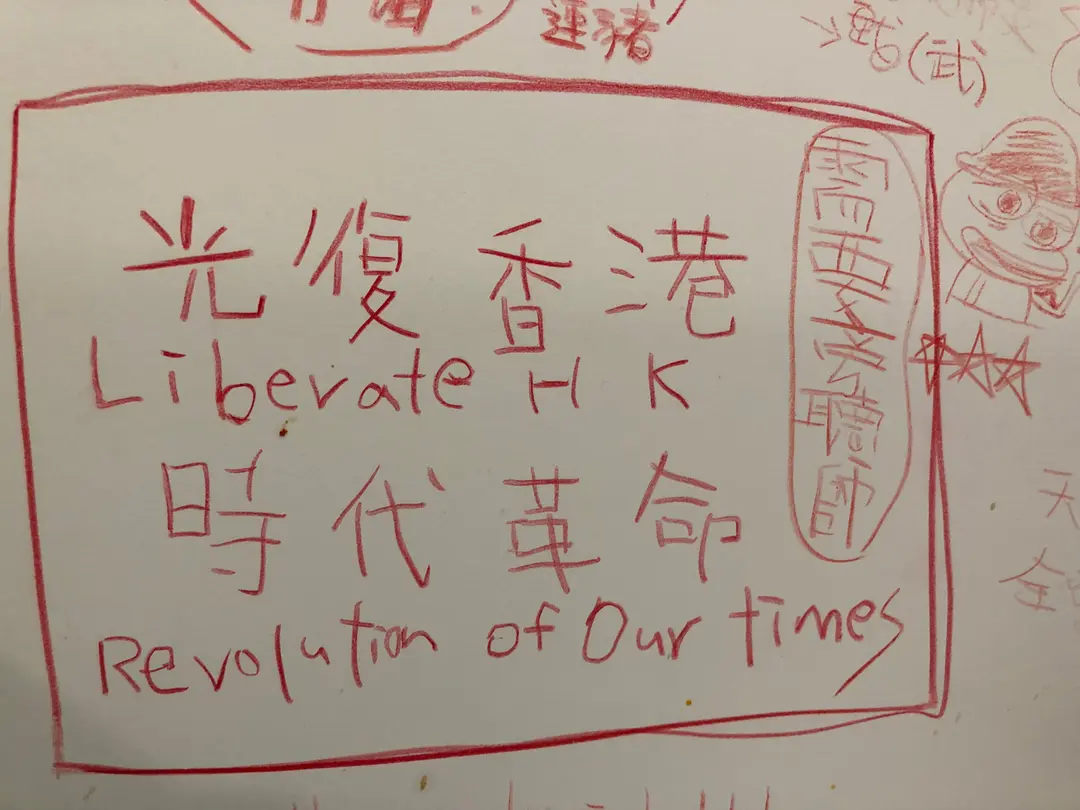 連豬
(武)
光復香港
Liberate HK
時代革命
Revolution of Our times
需要聆聽師
天
全